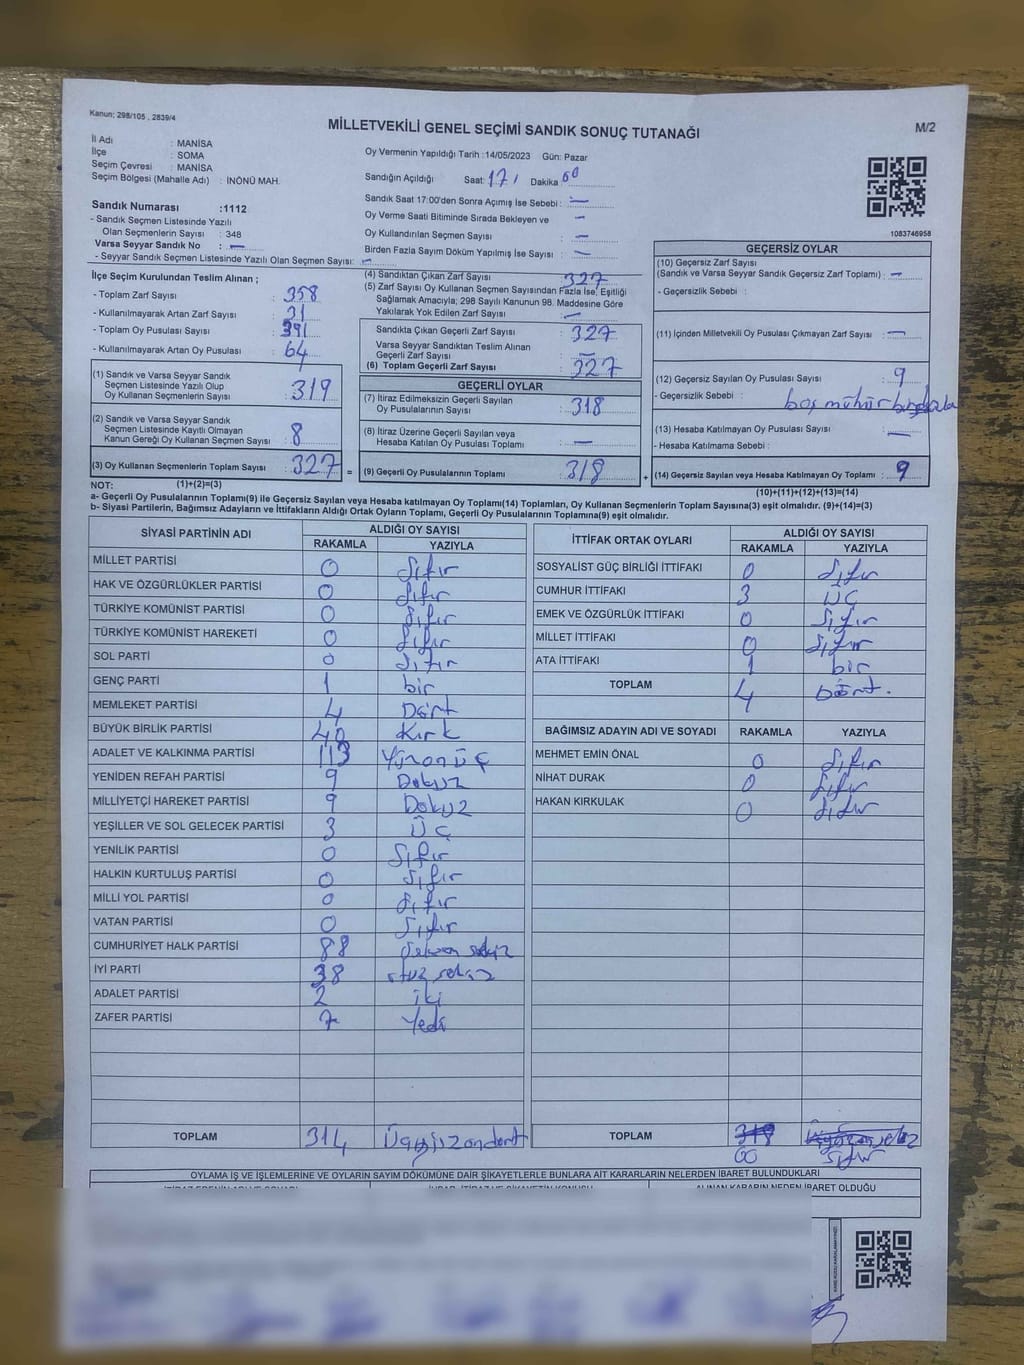 Kanun; 298/105 , 2839/4
MİLLETVEKİLİ GENEL SEÇİMİ SANDIK SONUÇ TUTANAĞI
M/2
İl Adı : MANİSA
İlçe : SOMA
Seçim Çevresi : MANİSA
Seçim Bölgesi (Mahalle Adı) : İNÖNÜ MAH.
Oy Vermenin Yapıldığı Tarih :14/05/2023 Gün: Pazar
Sandığın Açıldığı Saat: 17 Dakika
Sandık Saat 17:00'den Sonra Açımış İse Sebebi : —
Oy Verme Saati Bitiminde Sırada Bekleyen ve —
Oy Kullandırılan Seçmen Sayısı : —
Birden Fazla Sayım Döküm Yapılmış İse Sayısı : —
Sandık Numarası :1112
- Sandık Seçmen Listesinde Yazılı
Olan Seçmenlerin Sayısı : 348
Varsa Seyyar Sandık No : —
- Seyyar Sandık Seçmen Listesinde Yazılı Olan Seçmen Sayısı: —
1083746958
İlçe Seçim Kurulundan Teslim Alınan ;
- Toplam Zarf Sayısı : 358
- Kullanılmayarak Artan Zarf Sayısı : 31
- Toplam Oy Pusulası Sayısı : 391
- Kullanılmayarak Artan Oy Pusulası : 64
(1) Sandık ve Varsa Seyyar Sandık
Seçmen Listesinde Yazılı Olup
Oy Kullanan Seçmenlerin Sayısı : 319
(2) Sandık ve Varsa Seyyar Sandık
Seçmen Listesinde Kayıtlı Olmayan
Kanun Gereği Oy Kullanan Seçmen Sayısı : 8
(3) Oy Kullanan Seçmenlerin Toplam Sayısı : 327 =
(4) Sandıktan Çıkan Zarf Sayısı : 327
(5) Zarf Sayısı Oy Kullanan Seçmen Sayısından Fazla İse, Eşitliği
Sağlamak Amacıyla; 298 Sayılı Kanunun 98. Maddesine Göre
Yakılarak Yok Edilen Zarf Sayısı : —
Sandıkta Çıkan Geçerli Zarf Sayısı : 327
Varsa Seyyar Sandıktan Teslim Alınan
Geçerli Zarf Sayısı : —
(6) Toplam Geçerli Zarf Sayısı : 327
GEÇERLİ OYLAR
(7) İtiraz Edilmeksizin Geçerli Sayılan
Oy Pusulalarının Sayısı : 318
(8) İtiraz Üzerine Geçerli Sayılan veya
Hesaba Katılan Oy Pusulası Toplamı : —
(9) Geçerli Oy Pusulalarının Toplamı : 318 +
GEÇERSİZ OYLAR
(10) Geçersiz Zarf Sayısı
(Sandık ve Varsa Seyyar Sandık Geçersiz Zarf Toplamı) : —
- Geçersizlik Sebebi :
(11) İçinden Milletvekili Oy Pusulası Çıkmayan Zarf Sayısı : —
(12) Geçersiz Sayılan Oy Pusulası Sayısı : 9
- Geçersizlik Sebebi : boş mühür
(13) Hesaba Katılmayan Oy Pusulası Sayısı : —
- Hesaba Katılmama Sebebi :
(14) Geçersiz Sayılan veya Hesaba Katılmayan Oy Toplamı : 9
NOT: (1)+(2)=(3)
(10)+(11)+(12)+(13)=(14)
a- Geçerli Oy Pusulalarının Toplamı(9) ile Geçersiz Sayılan veya Hesaba katılmayan Oy Toplamı(14) Toplamları, Oy Kullanan Seçmenlerin Toplam Sayısına(3) eşit olmalıdır. (9)+(14)=(3)
b- Siyasi Partilerin, Bağımsız Adayların ve İttifakların Aldığı Ortak Oyların Toplamı, Geçerli Oy Pusulalarının Toplamına(9) eşit olmalıdır.
SİYASİ PARTİNİN ADI ALDIĞI OY SAYISI
RAKAMLA YAZIYLA
MİLLET PARTİSİ 0 Sıfır
HAK VE ÖZGÜRLÜKLER PARTİSİ 0 Sıfır
TÜRKİYE KOMÜNİST PARTİSİ 0 Sıfır
TÜRKİYE KOMÜNİST HAREKETİ 0 Sıfır
SOL PARTİ 0 Sıfır
GENÇ PARTİ 1 bir
MEMLEKET PARTİSİ 4 Dört
BÜYÜK BİRLİK PARTİSİ 40 Kırk
ADALET VE KALKINMA PARTİSİ 113 Yüzonüç
YENİDEN REFAH PARTİSİ 9 Dokuz
MİLLİYETÇİ HAREKET PARTİSİ 9 Dokuz
YEŞİLLER VE SOL GELECEK PARTİSİ 3 Üç
YENİLİK PARTİSİ 0 Sıfır
HALKIN KURTULUŞ PARTİSİ 0 Sıfır
MİLLİ YOL PARTİSİ 0 Sıfır
VATAN PARTİSİ 0 Sıfır
CUMHURİYET HALK PARTİSİ 88 Seksen sekiz
İYİ PARTİ 38 otuz sekiz
ADALET PARTİSİ 2 iki
ZAFER PARTİSİ 7 Yedi
TOPLAM 314 Üçyüzondört
İTTİFAK ORTAK OYLARI ALDIĞI OY SAYISI
RAKAMLA YAZIYLA
SOSYALİST GÜÇ BİRLİĞİ İTTİFAKI 0 Sıfır
CUMHUR İTTİFAKI 3 Üç
EMEK VE ÖZGÜRLÜK İTTİFAKI 0 Sıfır
MİLLET İTTİFAKI 0 Sıfır
ATA İTTİFAKI 1 bir
TOPLAM 4 Dört.
BAĞIMSIZ ADAYIN ADI VE SOYADI RAKAMLA YAZIYLA
MEHMET EMİN ÖNAL 0 Sıfır
NİHAT DURAK 0 Sıfır
HAKAN KIRKULAK 0 Sıfır
TOPLAM 318
00 Sıfır
OYLAMA İŞ VE İŞLEMLERİNE VE OYLARIN SAYIM DÖKÜMÜNE DAİR ŞİKAYETLERLE BUNLARA AİT KARARLARIN NELERDEN İBARET BULUNDUKLARI
ALINAN KARARIN NEDEN İBARET OLDUĞU